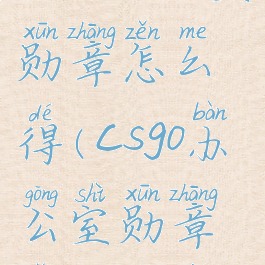 xūn zhāng zěn me
勋章怎么
dé bàn
得(csgo办
gōng shì xūn zhāng
公室勋章